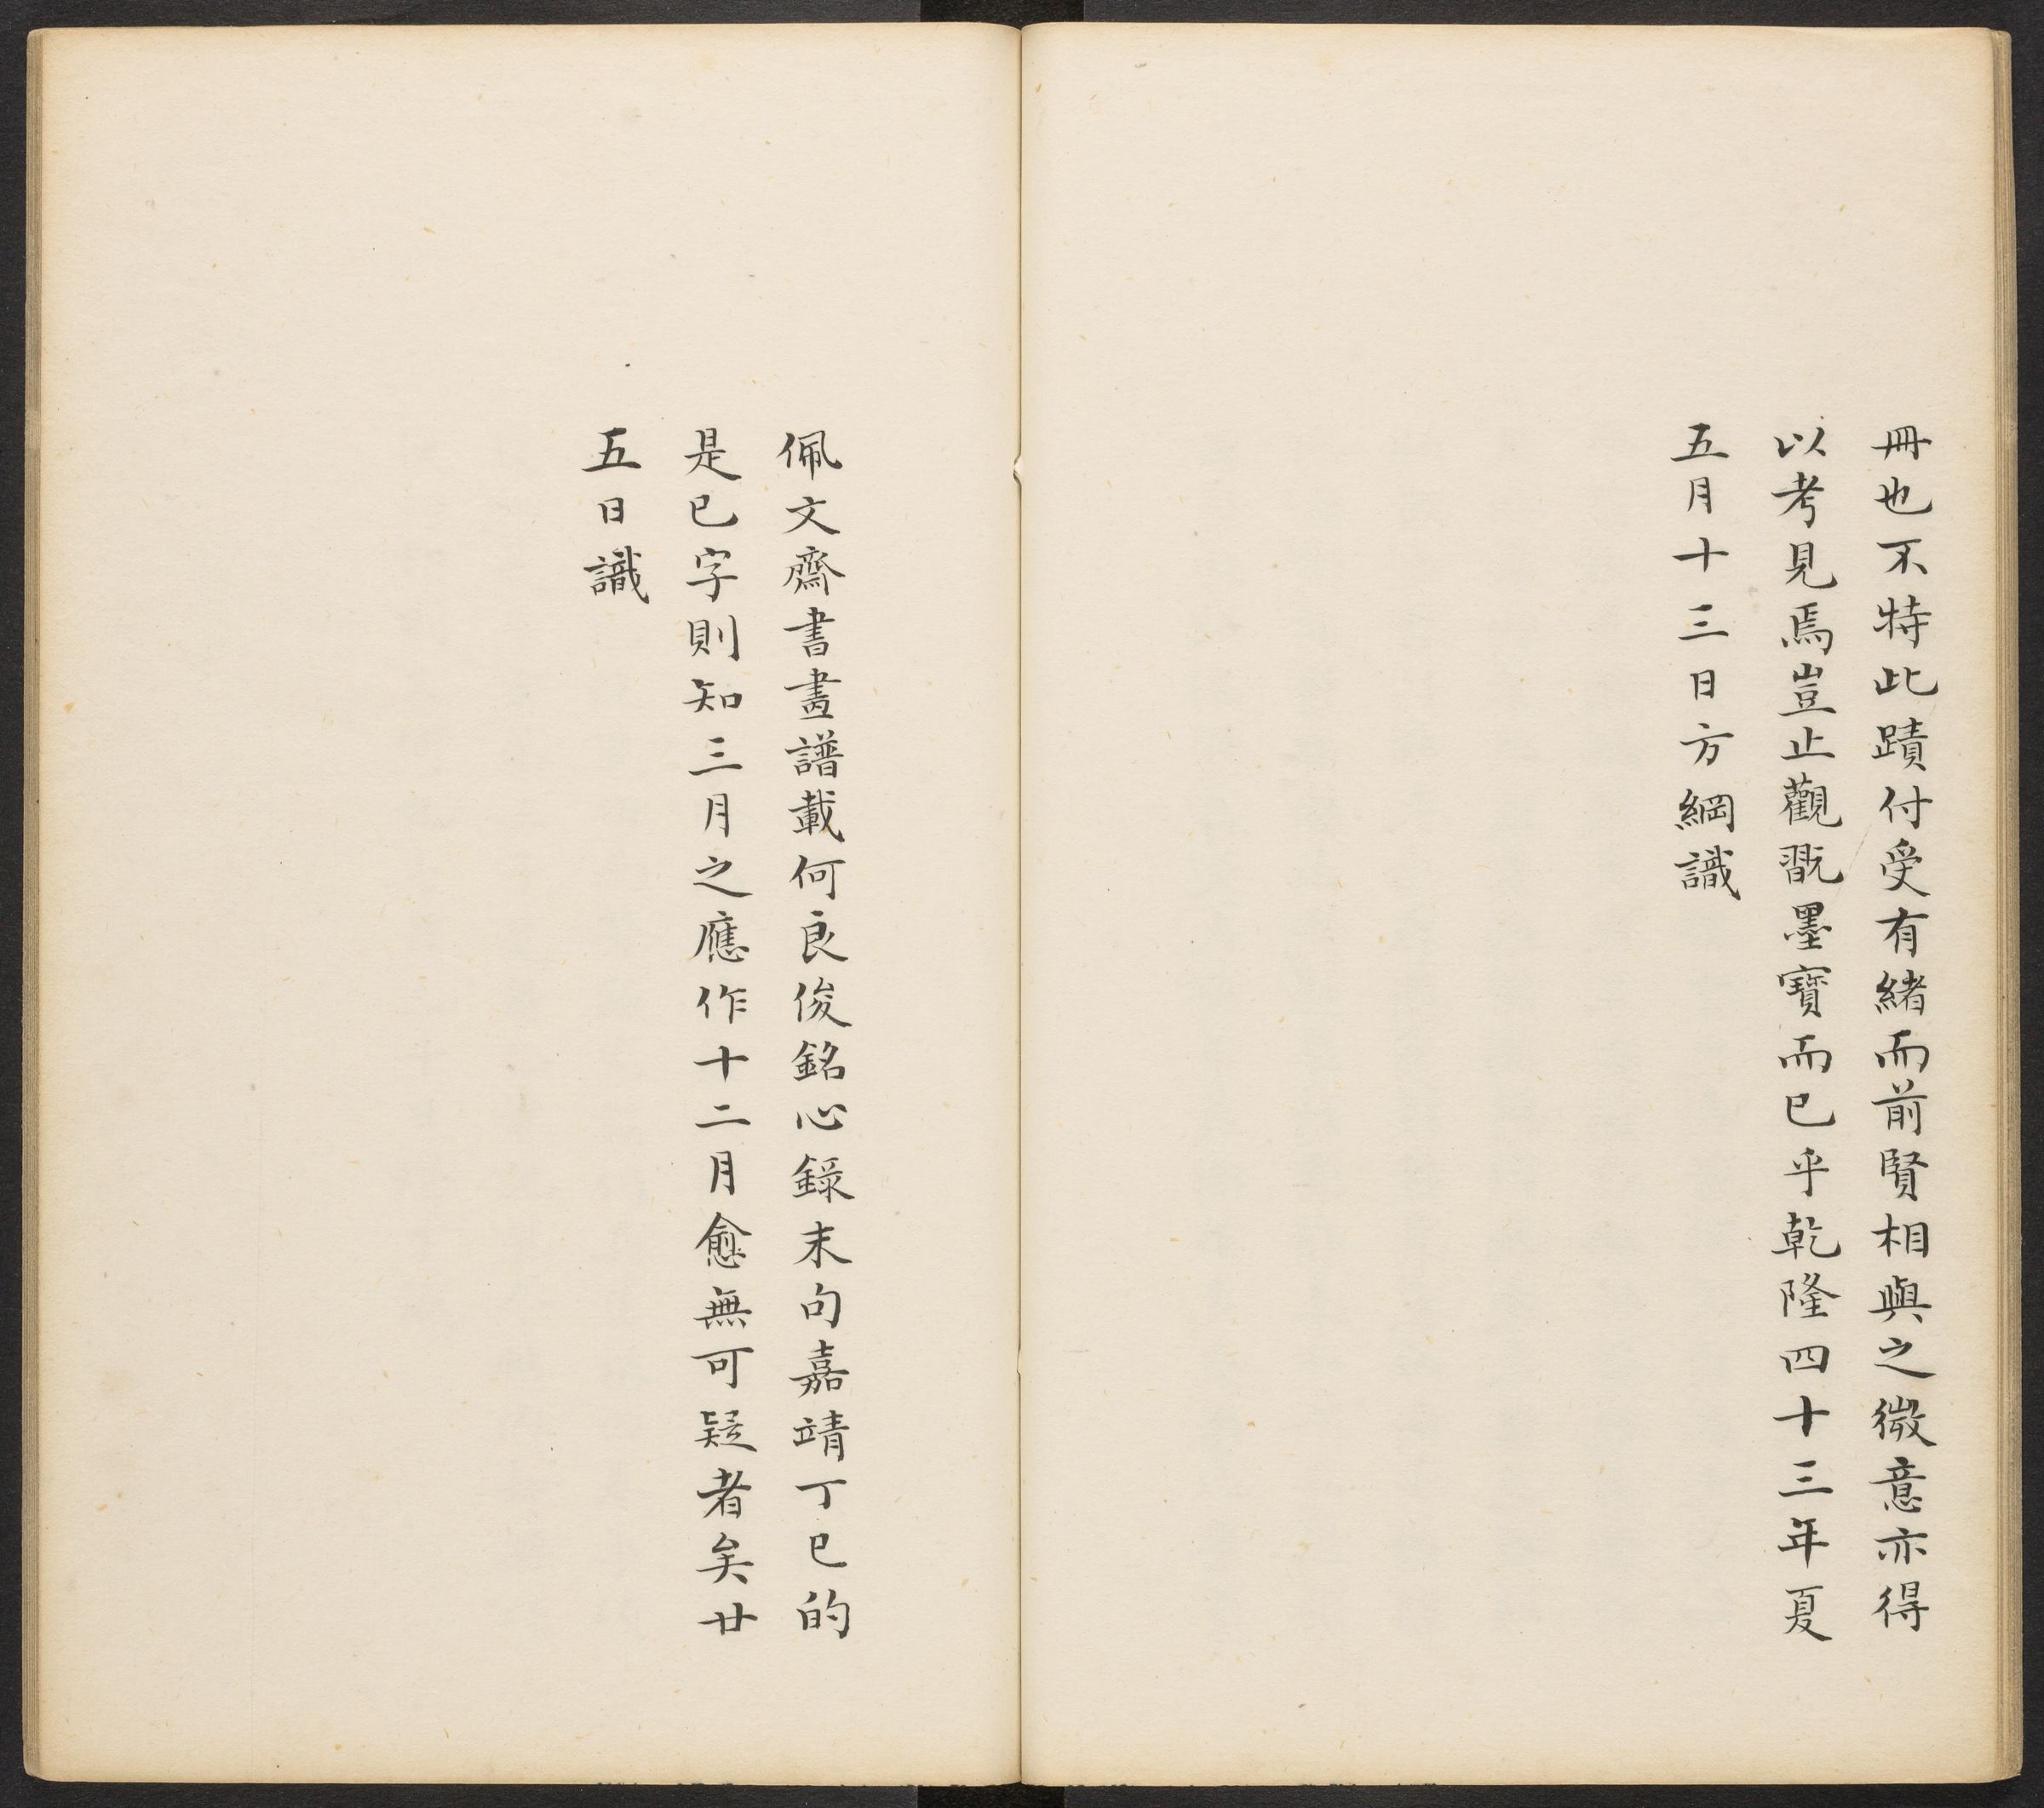 冊也不特此蹟付受有緒而前賢相與之微意亦得
以考見焉豈止觀翫墨寶而已乎乾隆四十三年夏
五月十三日方綱識
佩文齋書畫譜載何良俊銘心錄末句嘉靖丁巳的
是巳字則知三月之應作十二月愈無可疑者矣廿
五日識